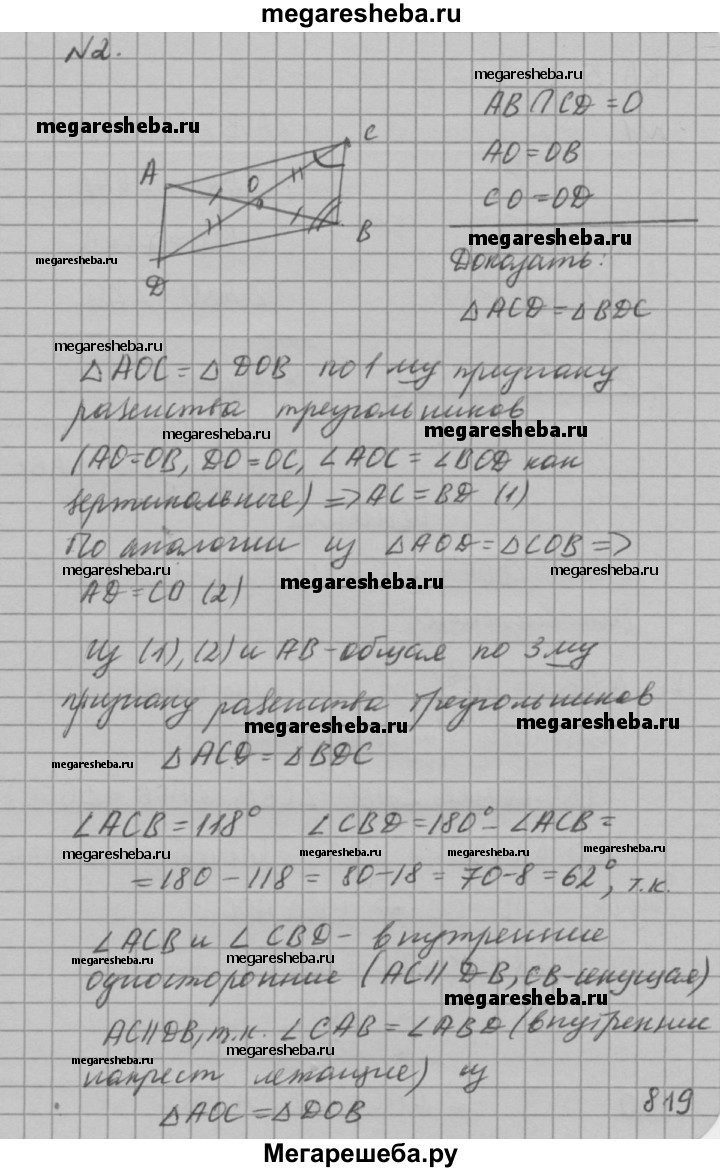 megaresheba.ru
N2.
megaresheba.ru
AB ∩ CD = O
megaresheba.ru
C
AO = OB
A
O
CO = OD
B
megaresheba.ru
megaresheba.ru
Доказать:
D
△ACD = △BDC
megaresheba.ru
△AOC = △DOB по 1му признаку
равенства треугольников
megaresheba.ru megaresheba.ru
(AO=OB, DO=OC, ∠AOC = ∠BOD как
вертикальные) => AC = BD (1)
По аналогии из △AOD = △COB =>
megaresheba.ru megaresheba.ru megaresheba.ru
AD = CO (2)
Из (1), (2) и AB - общая по 3му
признаку равенства треугольников
megaresheba.ru megaresheba.ru
megaresheba.ru
△ACD = △BDC
∠ACB = 118° ∠CBD = 180° - ∠ACB =
megaresheba.ru megaresheba.ru megaresheba.ru megaresheba.ru
= 180 - 118 = 80-18 = 70-8 = 62°, т.к.
∠ACB и ∠CBD - внутренние
megaresheba.ru megaresheba.ru
односторонние (AC || DB, CB-секущая)
megaresheba.ru
AC || DB, т.к. ∠CAB = ∠ABD (внутренние
megaresheba.ru megaresheba.ru
накрест лежащие) из
△AOC = △DOB
819
Мегарешеба.ру